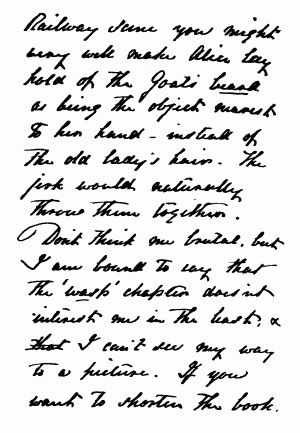 Railway scene you might
very well make Alice lay
hold of the Goat's beard
as being the object nearest
to her hand - instead of
the old lady's hair. The
jerk would naturally
throw them together.
Don't think me brutal, but
I am bound to say that
the 'wasp' chapter does'nt
interest me in the least, &
that I can't see my way
to a picture. If you
want to shorten the book,